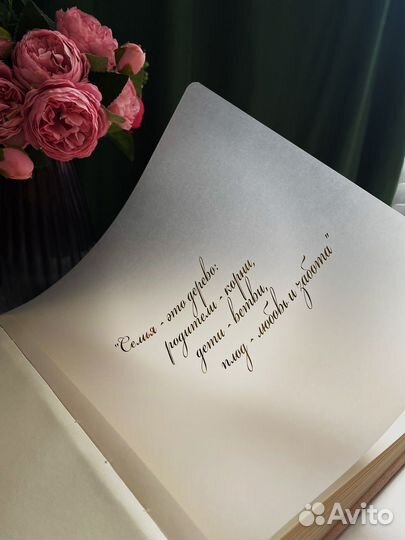 "Семья - это дерево:
родители - корни,
дети - ветви,
плод - любовь и забота"
Avito